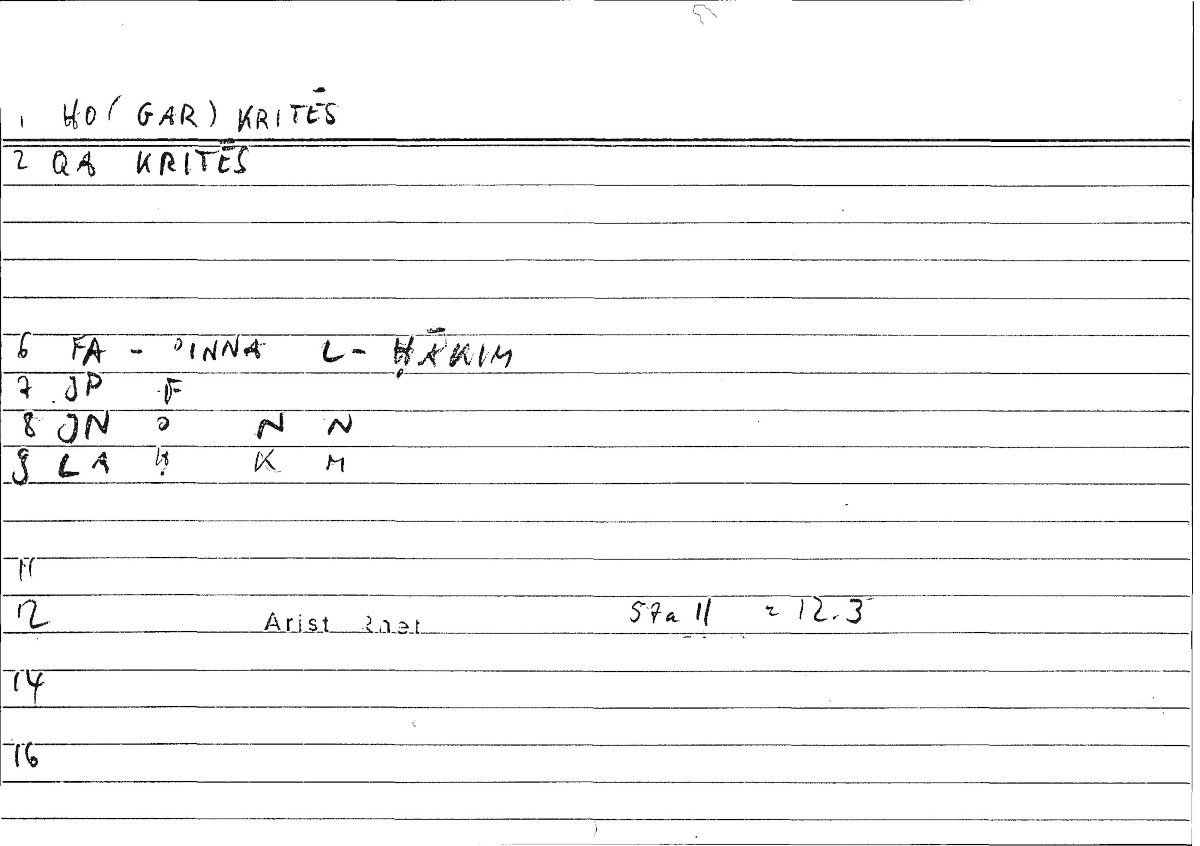 1 HO (GAR) KRITĒS
2 QA KRITĒS
6 FA - ʾINNA L - ḤĀKIM
7 JP F
8 JN ʾ N N
9 LA Ḥ K M
11
12 Arist Rhet 57a 11 = 12.3
14
16